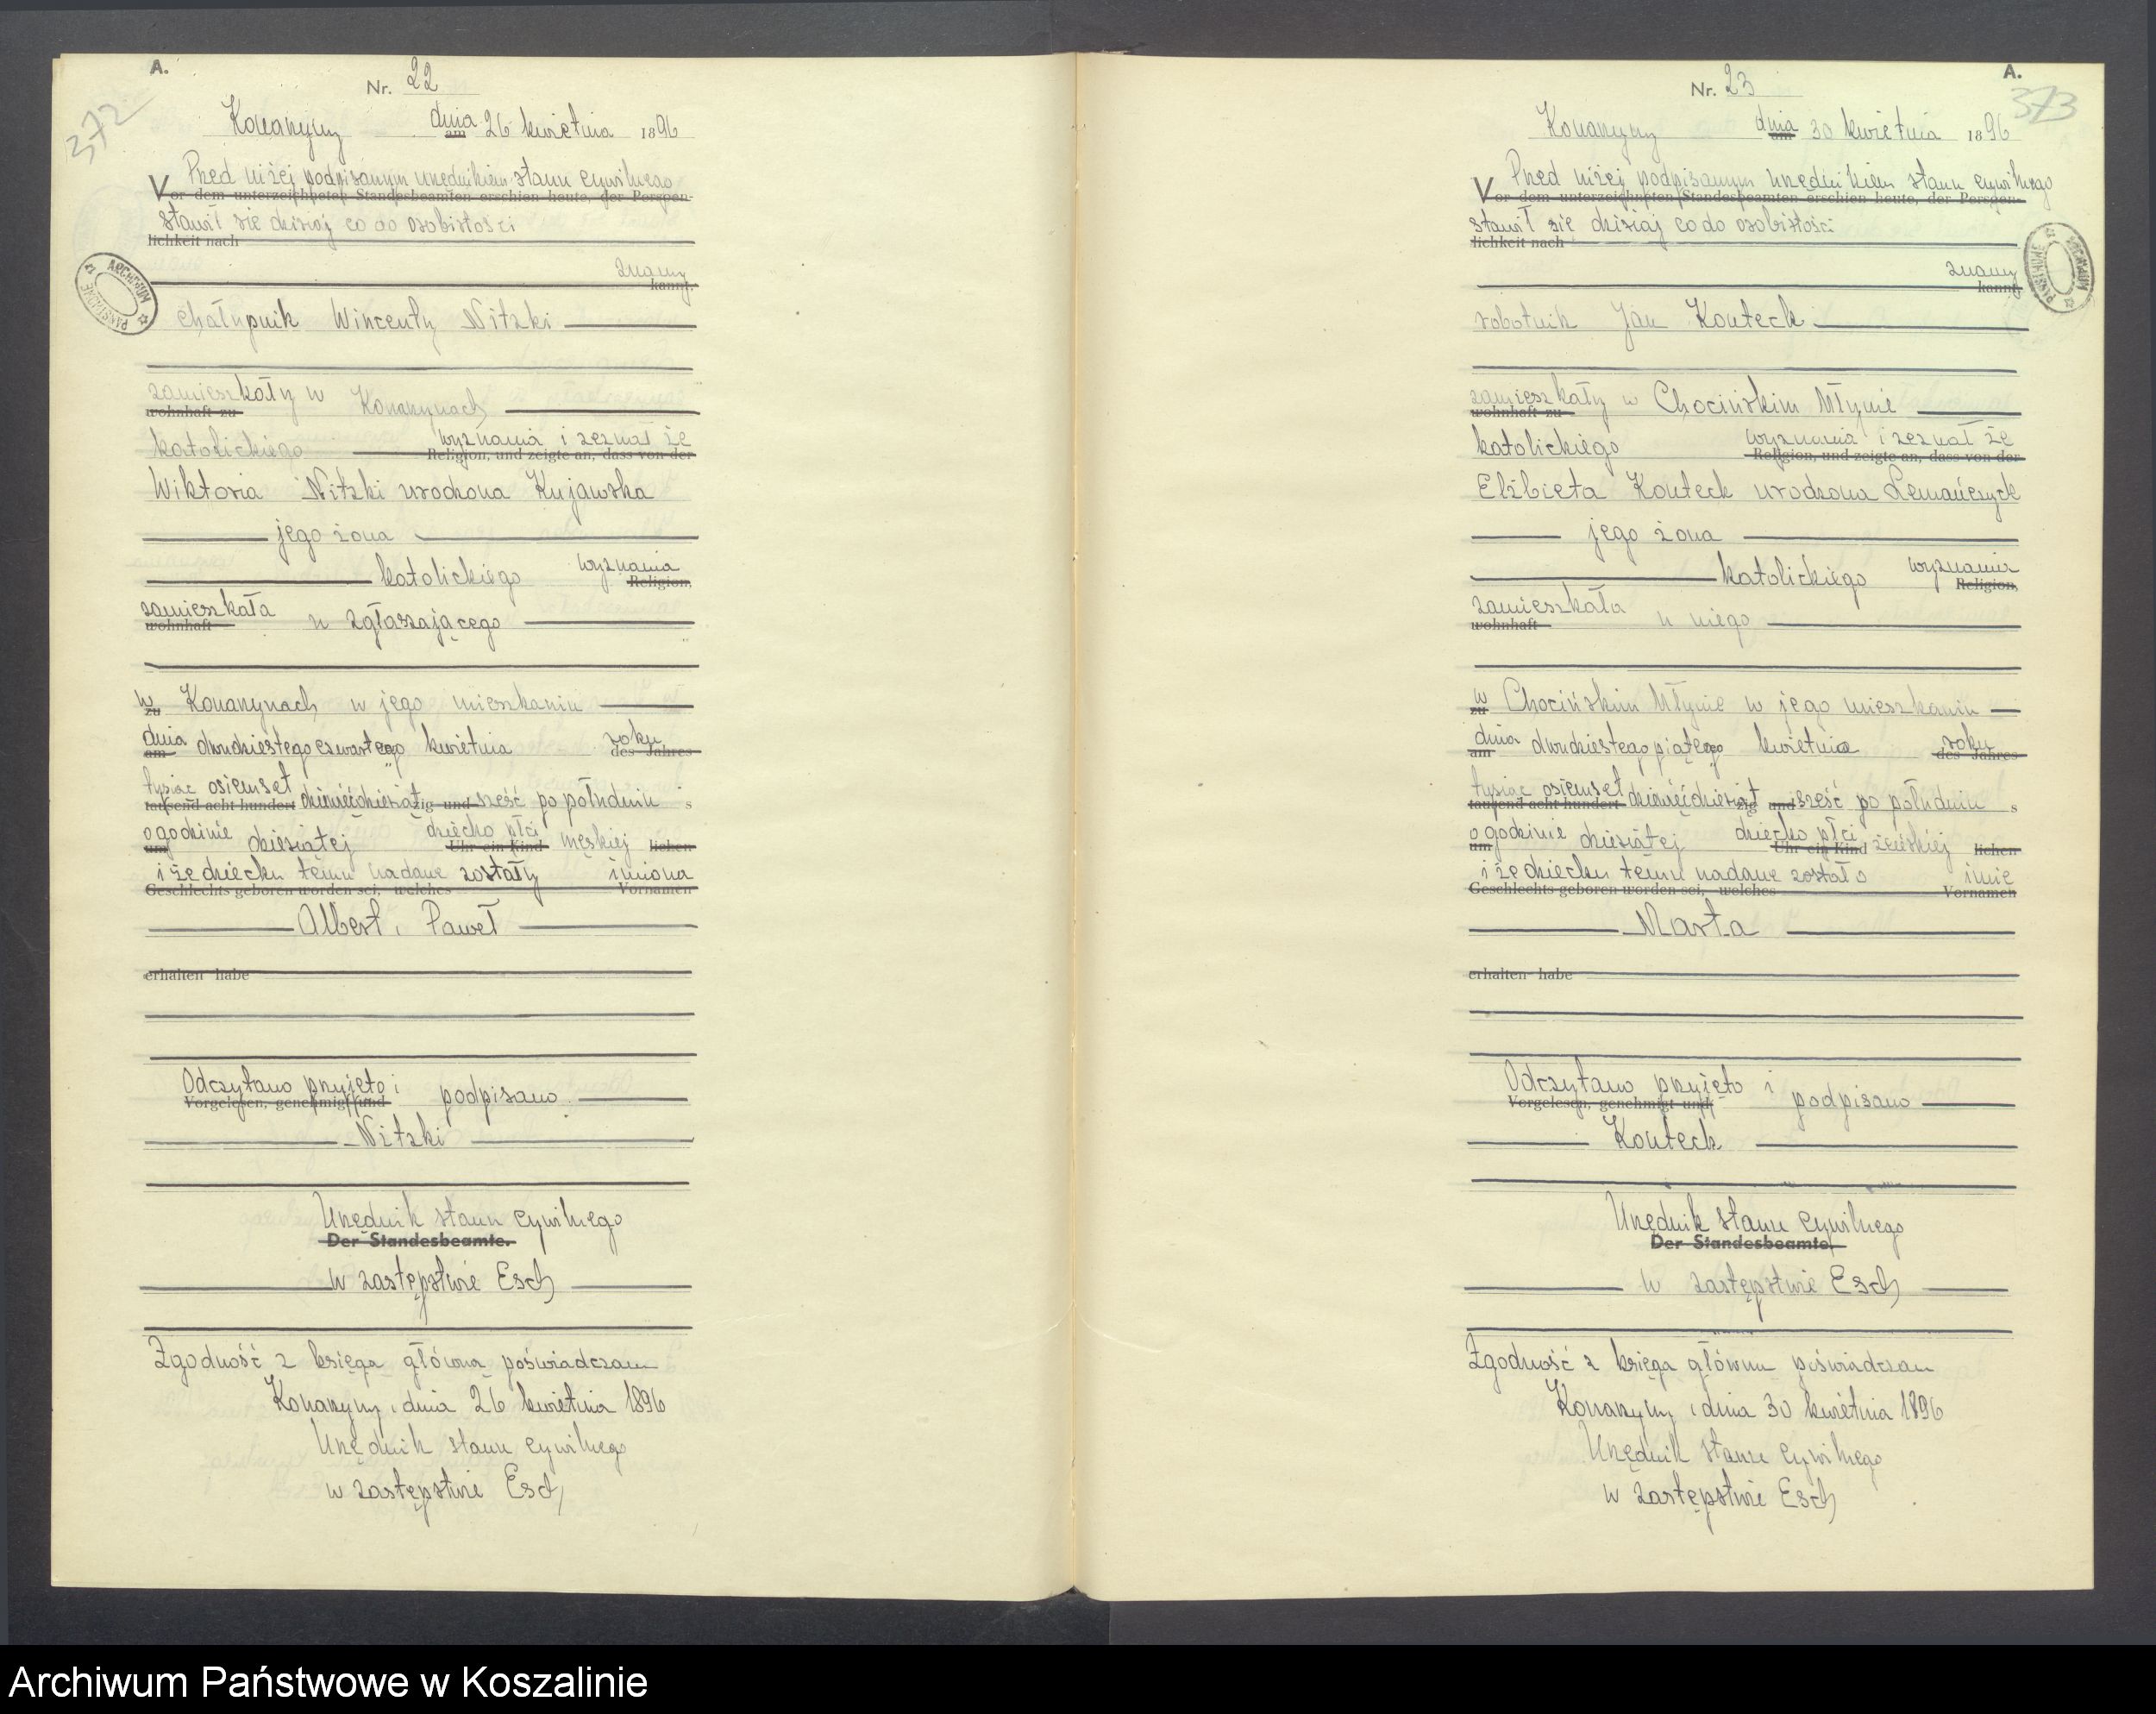 A.
372
Nr. 22
Konarzyny dnia am 26 kwietnia 1896
Przed niżej podpisanym urzędnikiem stanu cywilnego
Vor dem unterzeichneten Standesbeamten erschien heute, der Persön-
stawił się dzisiaj co do osobistości
lichkeit nach
znany
kannt,
chałupnik Wincenty Nitzki
zamieszkały w Konarzynach
wohnhaft zu
katolickiego wyznania i zeznał że
Religion, und zeigte an, dass von der
Wiktoria Nitzki urodzona Kujawska
jego żona
katolickiego wyznania
Religion,
zamieszkała u zgłaszającego
wohnhaft
w Konarzynach w jego mieszkaniu
zu
dnia dwudziestego czwartego kwietnia roku
am des Jahres
tysiąc osiemset dziewięćdziesiąt sześć po południu s
tausend acht hundert zig und
o godzinie dziesiątej dziecko płci męskiej
um Uhr ein Kind lichen
i że dziecku temu nadane zostały imiona
Geschlechts geboren worden sei, welches Vornamen
Albert, Paweł
erhalten habe
Odczytano przyjęto i podpisano
Vorgelesen, genehmigt und
Nitzki
Urzędnik stanu cywilnego
Der Standesbeamte.
w zastępstwie Esch
Zgodność z księgą główną poświadczam
Konarzyny, dnia 26 kwietnia 1896
Urzędnik stanu cywilnego
w zastępstwie Esch
ARCHIWUM PAŃSTWOWE
A.
373
Nr. 23
Konarzyny dnia am 30 kwietnia 1896
Przed niżej podpisanym urzędnikiem stanu cywilnego
Vor dem unterzeichneten Standesbeamten erschien heute, der Persön-
stawił się dzisiaj co do osobistości
lichkeit nach
znany
kannt,
robotnik Jan Konteck
zamieszkały w Chocińskim Młynie
wohnhaft zu
katolickiego wyznania i zeznał że
Religion, und zeigte an, dass von der
Elżbieta Konteck urodzona Lemańczyck
jego żona
katolickiego wyznania
Religion,
zamieszkała u niego
wohnhaft
w Chocińskim Młynie w jego mieszkaniu
zu
dnia dwudziestego piątego kwietnia roku
am des Jahres
tysiąc osiemset dziewięćdziesiąt sześć po południu s
tausend acht hundert zig und
o godzinie dziesiątej dziecko płci żeńskiej
um Uhr ein Kind lichen
i że dziecku temu nadane zostało imię
Geschlechts geboren worden sei, welches Vornamen
Marta
erhalten habe
Odczytano przyjęto i podpisano
Vorgelesen, genehmigt und
Konteck
Urzędnik stanu cywilnego
Der Standesbeamte.
w zastępstwie Esch
Zgodność z księgą główną poświadczam
Konarzyny, dnia 30 kwietnia 1896
Urzędnik stanu cywilnego
w zastępstwie Esch
ARCHIWUM PAŃSTWOWE
Archiwum Państwowe w Koszalinie